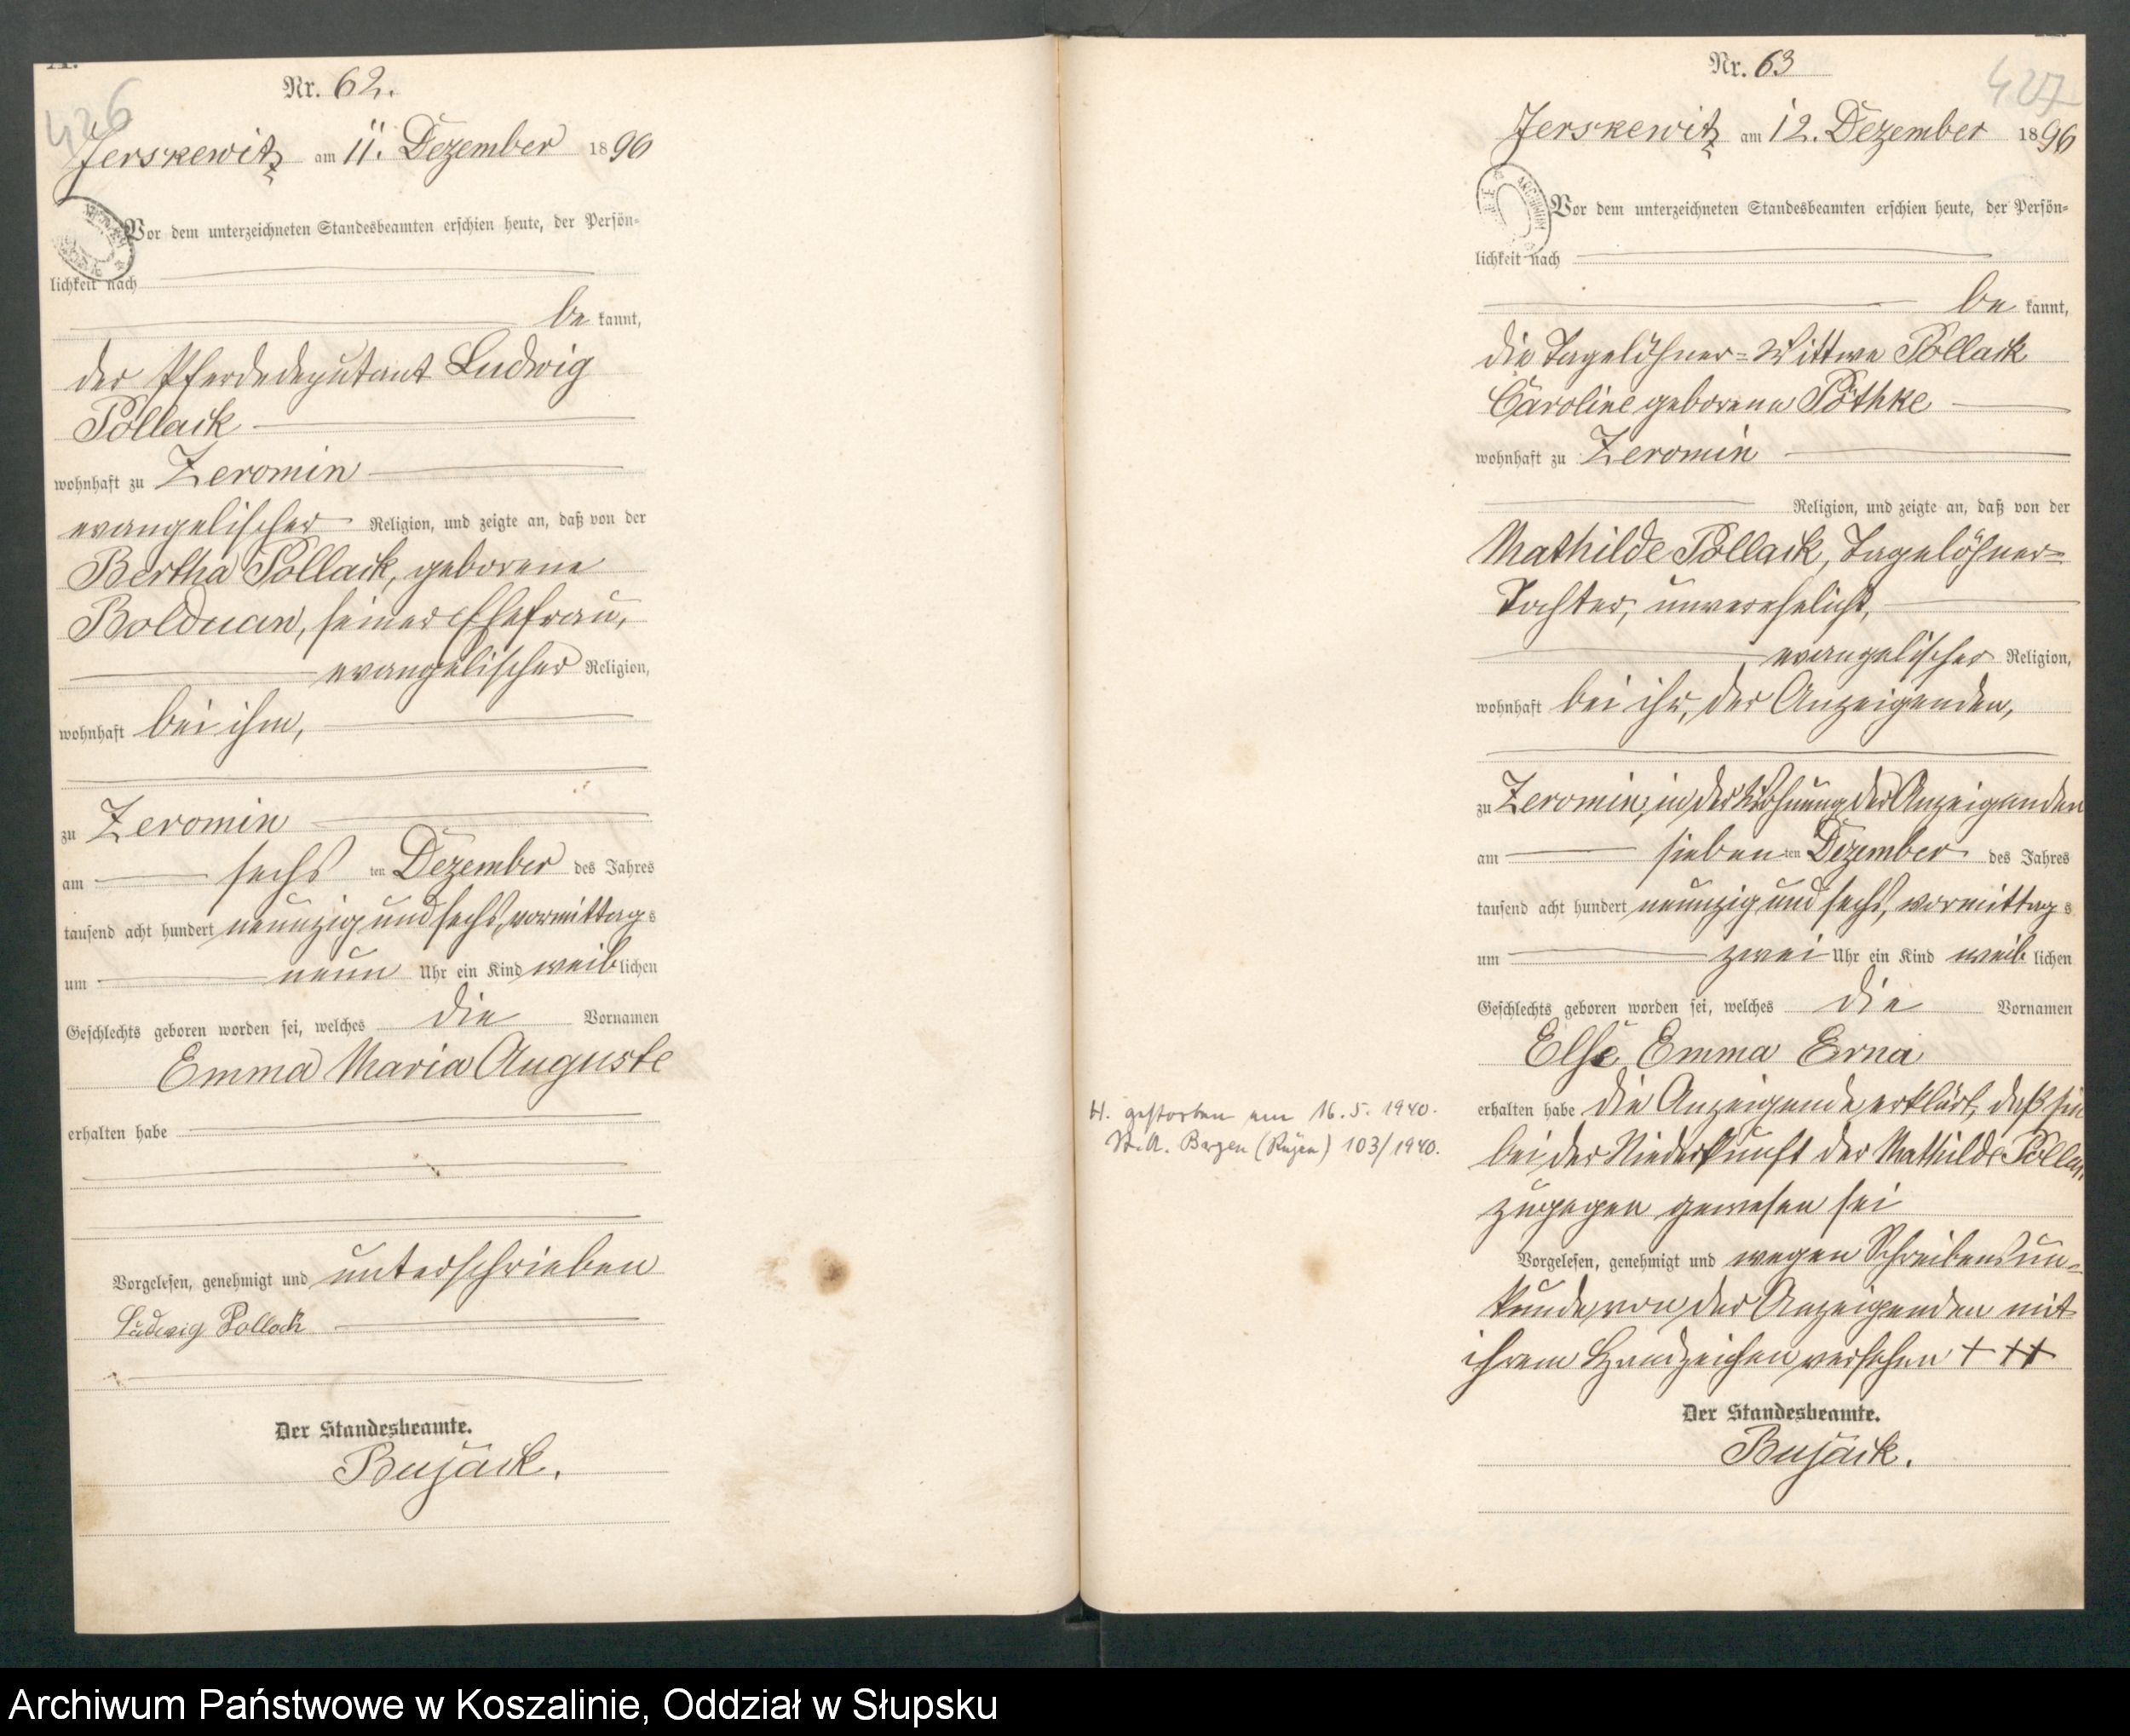 Nr. 62.
426
Jerskewitz am 11. Dezember 1896
Vor dem unterzeichneten Standesbeamten erschien heute, der Persön-
lichkeit nach
be kannt,
der Pferdedeputant Ludwig
Pollack
wohnhaft zu Zeromin
evangelischer Religion, und zeigte an, daß von der
Bertha Pollack, geborene
Bolduan, seiner Ehefrau,
evangelischer Religion,
wohnhaft bei ihm,
zu Zeromin
am sechs ten Dezember des Jahres
tausend acht hundert neunzig und sechs, vormittags
um neun Uhr ein Kind weiblichen
Geschlechts geboren worden sei, welches die Vornamen
Emma Maria Auguste
erhalten habe
Vorgelesen, genehmigt und unterschrieben
Ludwig Pollack
Der Standesbeamte.
Bujack.
Nr. 63
427
Jerskewitz am 12. Dezember 1896
Vor dem unterzeichneten Standesbeamten erschien heute, der Persön-
lichkeit nach
be kannt,
die Tagelöhner-Wittwe Pollack
Caroline geborene Pöthke
wohnhaft zu Zeromin
Religion, und zeigte an, daß von der
Mathilde Pollack, Tagelöhner-
Tochter, unverehelicht,
evangelischer Religion,
wohnhaft bei ihr, der Anzeigenden,
zu Zeromin, in der Wohnung der Anzeigenden
am sieben ten Dezember des Jahres
tausend acht hundert neunzig und sechs, vormittags
um zwei Uhr ein Kind weib lichen
Geschlechts geboren worden sei, welches die Vornamen
Else, Emma Erna
erhalten habe die Anzeigende erklärt, daß sie
bei der Niederkunft der Mathilde Pollack
zugegen gewesen sei
Vorgelesen, genehmigt und wegen Schreibensun-
kunde von der Anzeigenden mit
ihrem Handzeichen versehen + + +
Der Standesbeamte.
Bujack.
H. gestorben am 16.5.1940.
St.A. Bergen (Rügen) 103/1940.
Archiwum Państwowe w Koszalinie, Oddział w Słupsku